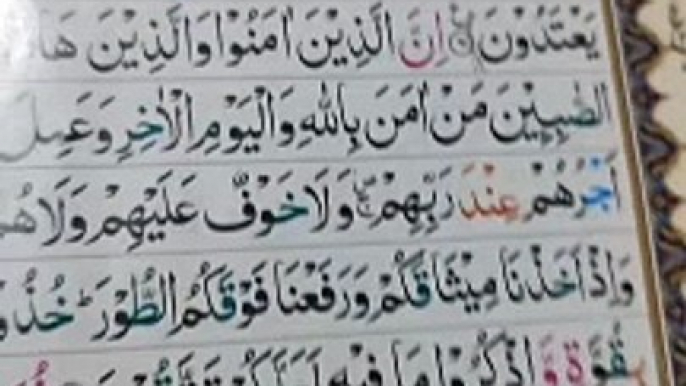 يَعْتَدُوْنَ اِنَّ الَّذِيْنَ اٰمَنُوْا وَالَّذِيْنَ
الصّٰبِـِٕيْنَ مَنْ اٰمَنَ بِاللّٰهِ وَالْيَوْمِ الْاٰخِرِ وَعَمِلَ
اَجْرُهُمْ عِنْدَ رَبِّهِمْ ۚ وَلَا خَوْفٌ عَلَيْهِمْ وَلَا
وَاِذْ اَخَذْنَا مِيْثَاقَكُمْ وَرَفَعْنَا فَوْقَكُمُ الطُّوْرَ ؕ خُذُ
بِقُوَّةٍ وَّاذْكُرُوْا مَا فِيْهِ